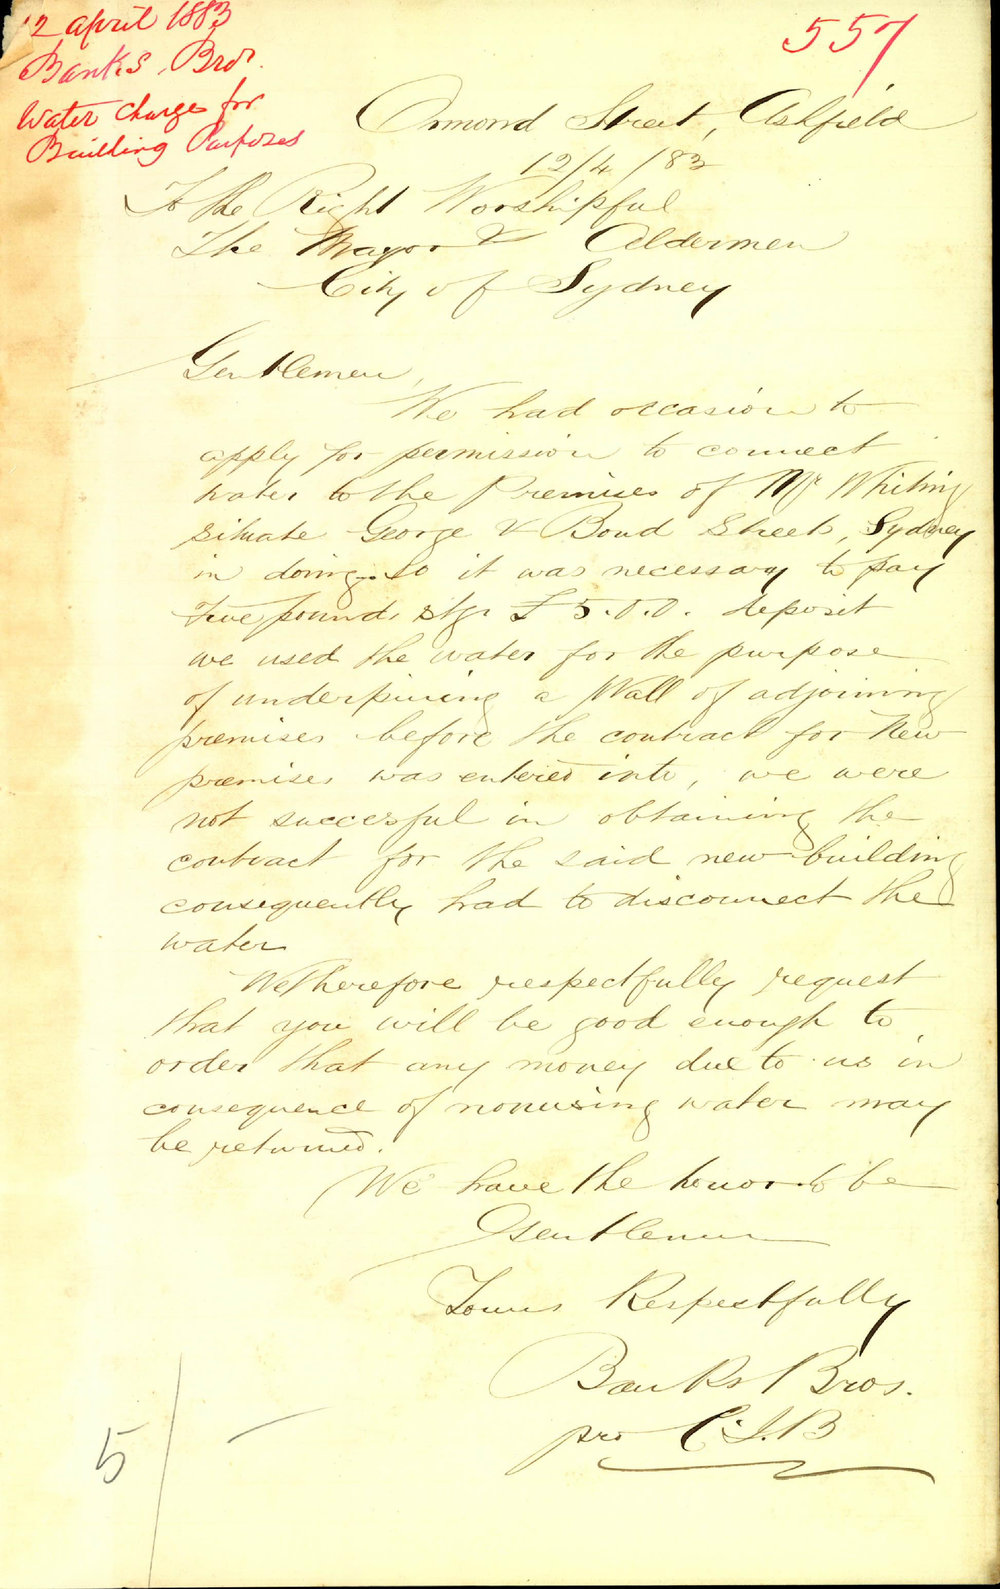 12 april 1883
Banks Bros.
Water Charge for
Building Purposes
557
Ormond Street, Ashfield
12/4/83
To the Right Worshipful
The Mayor & Aldermen
City of Sydney
Gentlemen,
We had occasion to
apply for permission to connect
water to the Premises of Mr Whiting
situate George & Bond Streets, Sydney
in doing so it was necessary to pay
Five pounds stg. £5.0.0. deposit
we used the water for the purpose
of underpining a Wall of adjoining
premises before the contract for New
premises was entered into, we were
not succesful in obtaining the
contract for the said new building
consequently had to disconnect the
water
We Therefore respectfully request
that you will be good enough to
order that any money due to us in
consequence of nonusing water may
be returned.
We have the honor to be
Gentlemen
Yours Respectfully
Banks Bros.
pro C.J.B
5/-